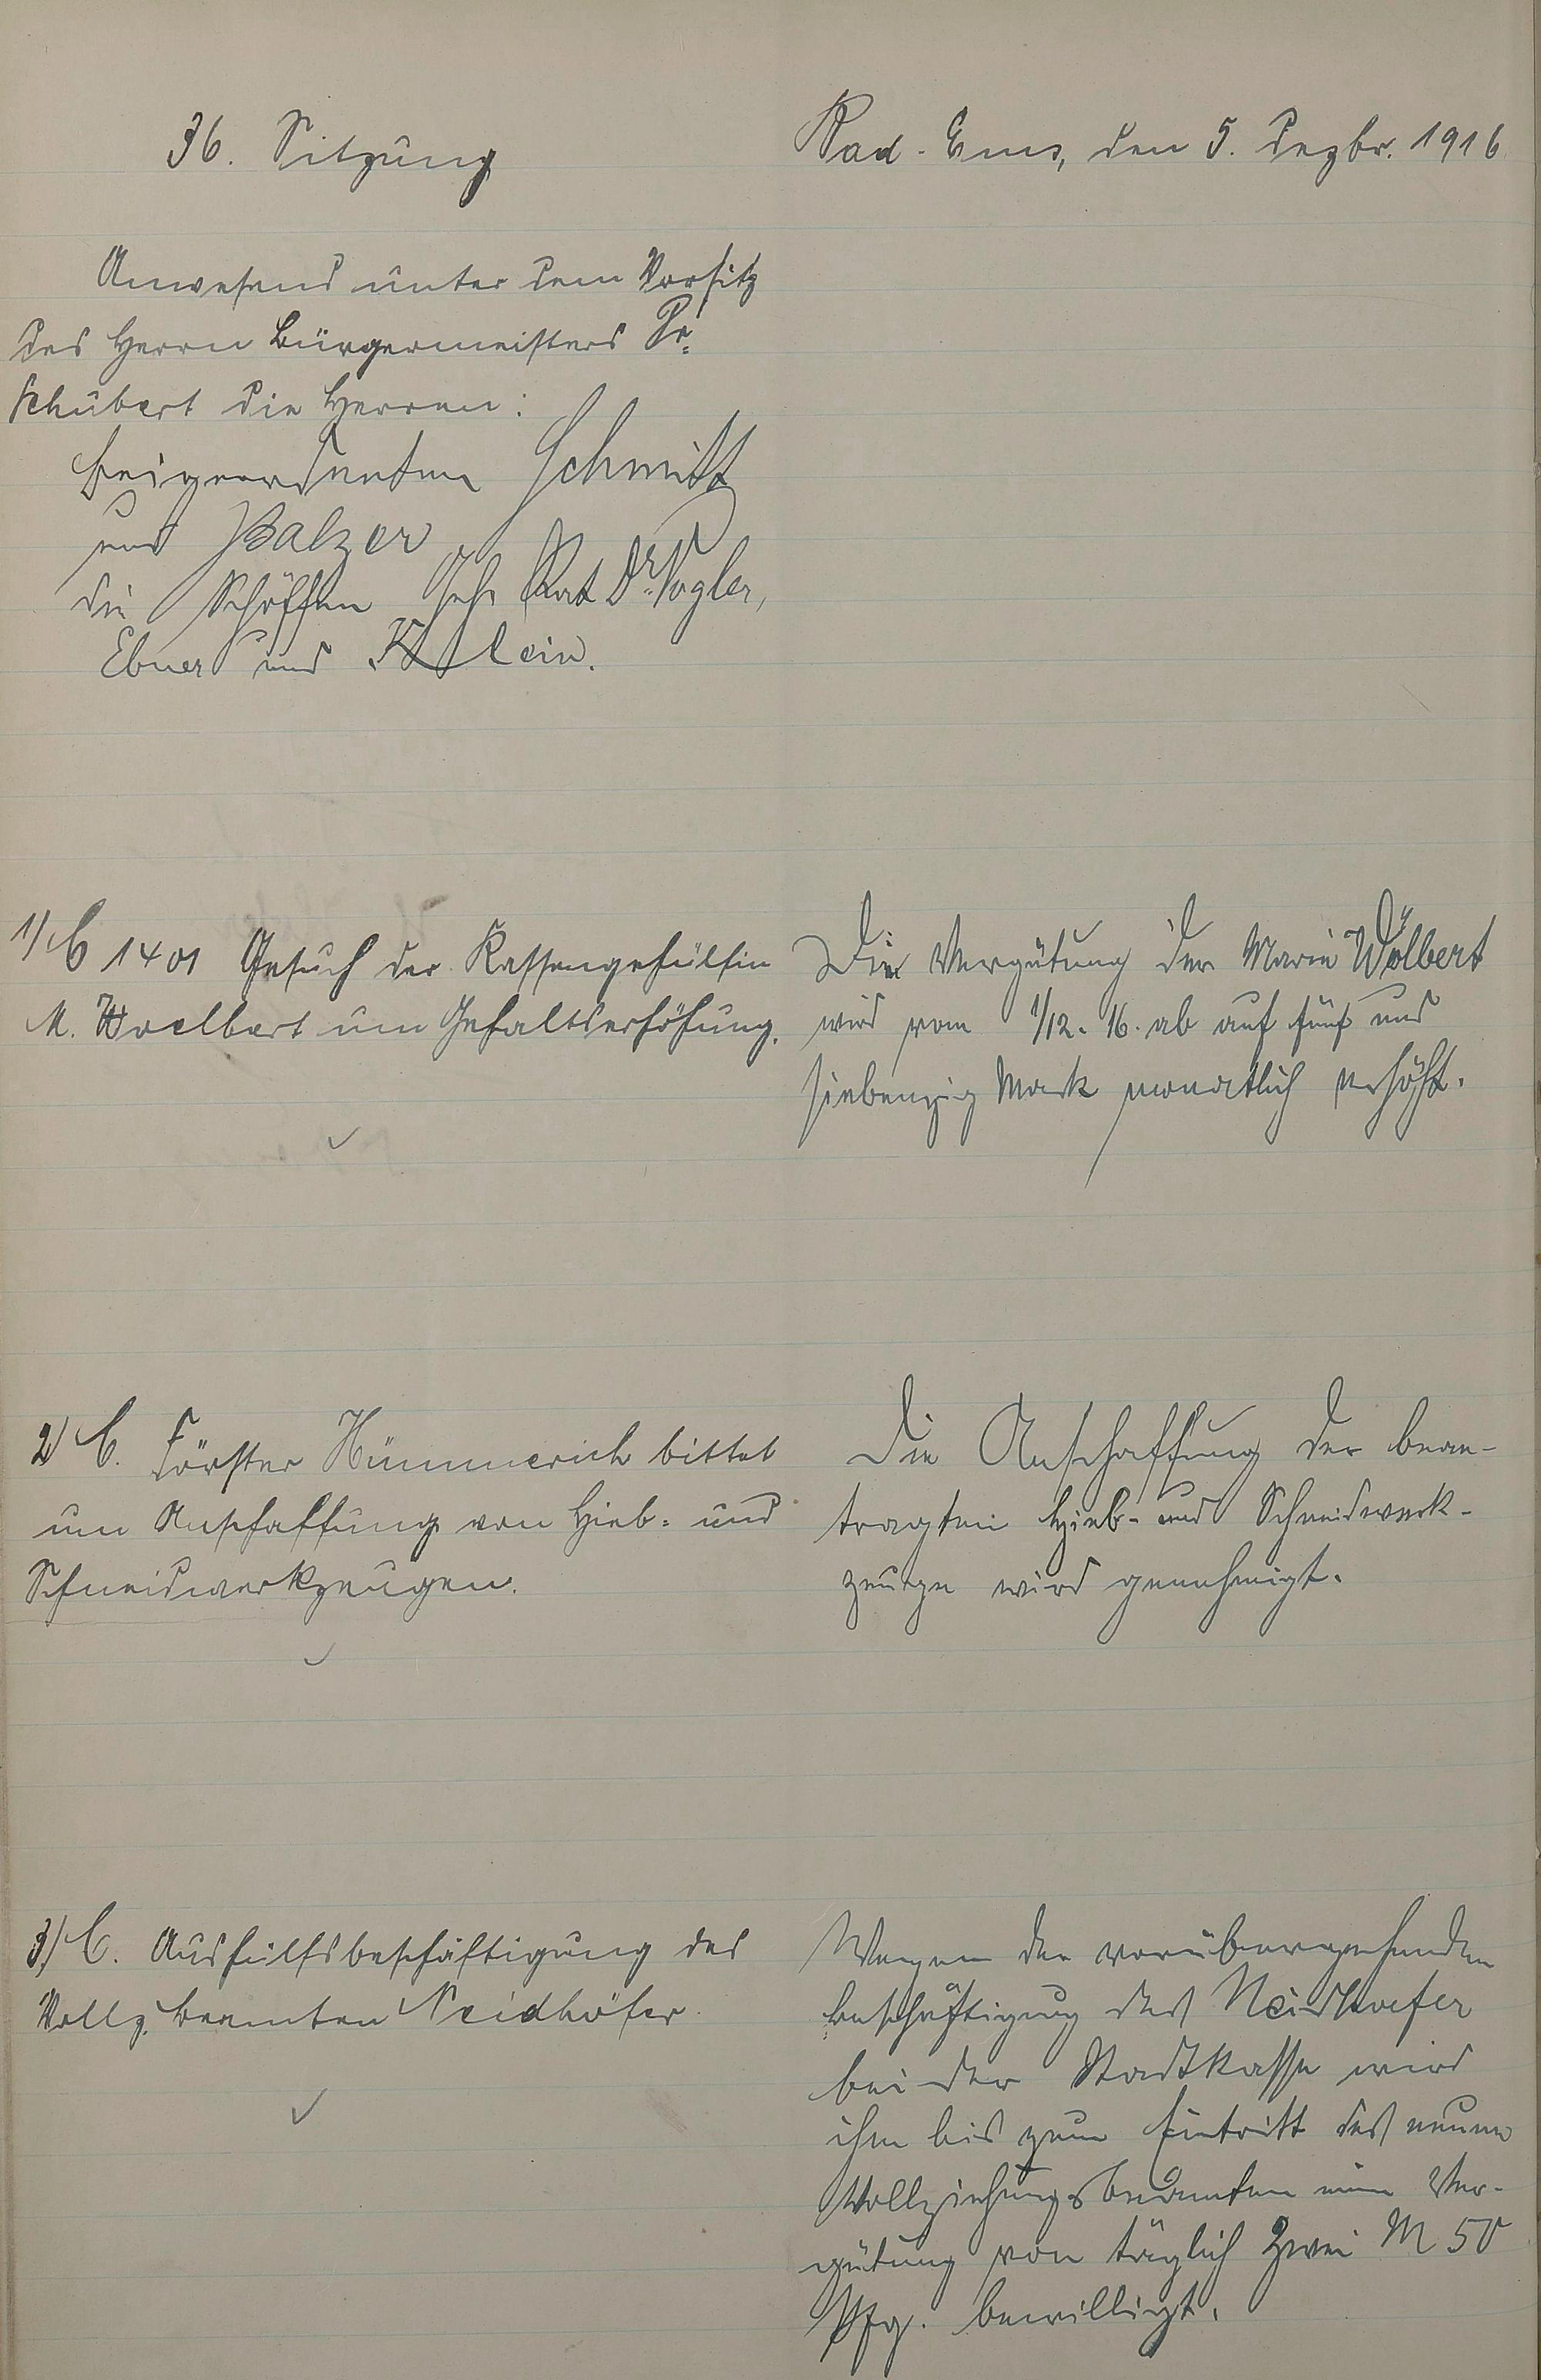 36. Sitzung
Bad-Ems, den 5. Dezbr. 1916
Anwesend unter dem Vorsitz
des Herrn Bürgermeisters Dr.
Schubert die Herren:
Beigeordneten Schmitt
und Balzer
die Schöffen Geh. Rat Dr. Vogler,
Ebner und Klein.
1/ C 1401 Gesuch der Kassengehülfin
M. Woelbert um Gehaltserhöhung.
Die Vergütung der Marie Wölbert
wird vom 1/12. 16. ab auf fünf und
siebenzig Mark monatlich erhöht.
2/ C. Förster Hümmerich bittet
um Anschaffung von Hieb- und
Schneidwerkzeugen.
Die Anschaffung der bean-
tragten Hieb- und Schneidwerk-
zeuge wird genehmigt.
3/ C. Aushülfsbeschäftigung des
Vollz. beamten Neidhöfer.
Wegen der vorübergehenden
Beschäftigung des Neidhoefer
bei der Stadtkasse wird
ihm bis zum Eintritt des neuen
Vollziehungsbeamten eine Ver-
gütung von täglich Zwei M 50
Pfg. bewilligt.